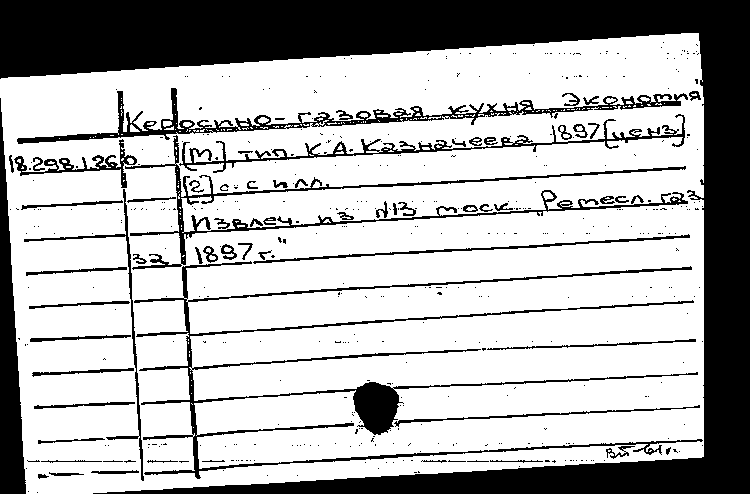 Керосино-газовая кухня "Экономия"
18.298.1.260 [М.], тип. К.А. Казначеева, 1897 [ценз.].
[2] с. с илл.
"Извлеч. из №13 моск. "Ремесл. газ"
32 1897 г."